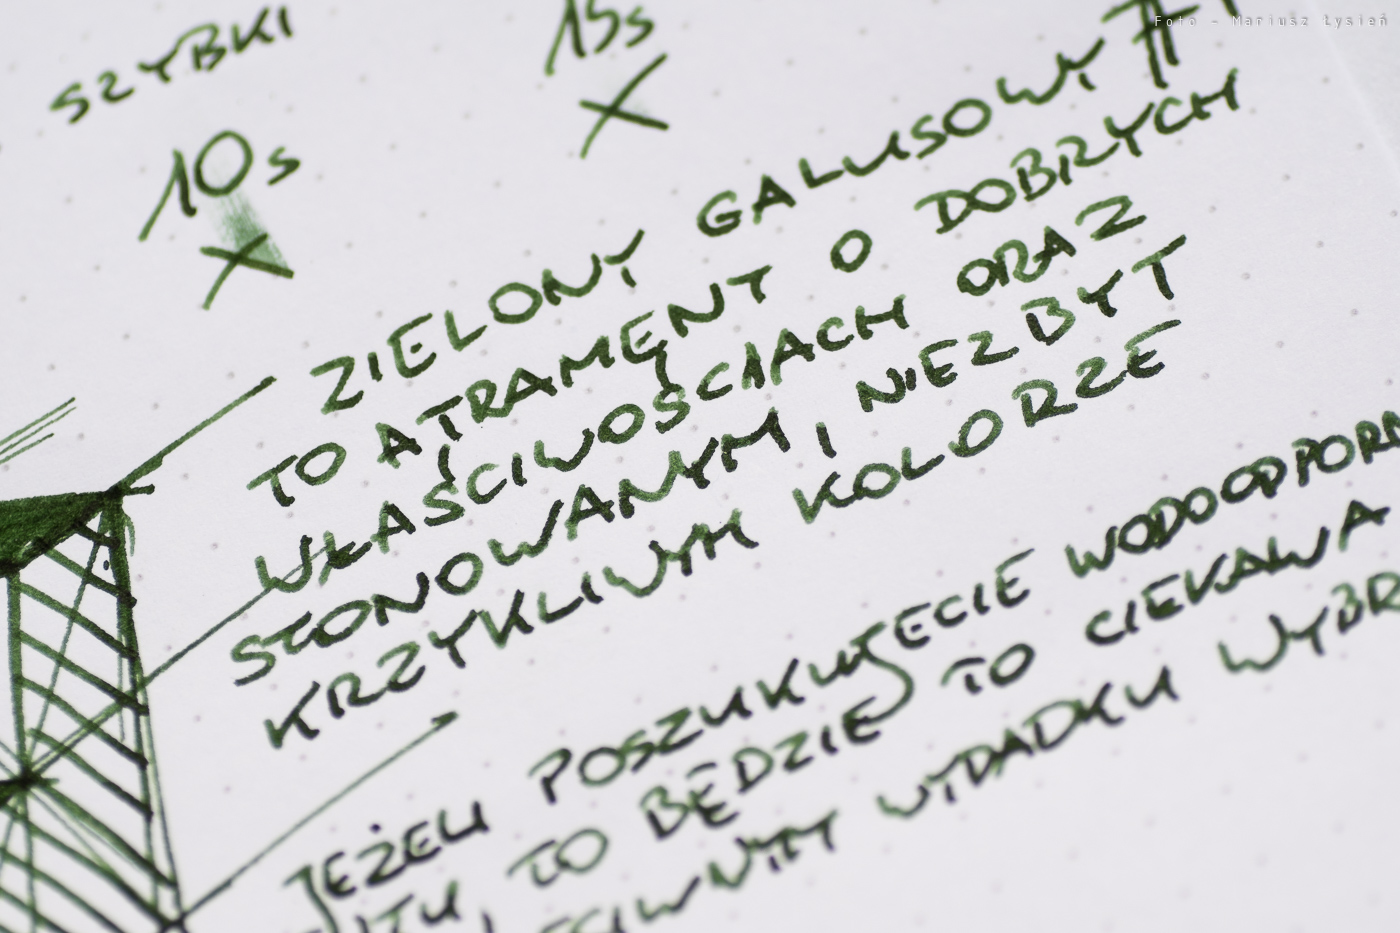 Foto - Mariusz Łysień
SZYBKI
15s
10s
ZIELONY GALUSOWY
TO ATRAMENT O DOBRYCH
WŁAŚCIWOŚCIACH ORAZ
STONOWANYM, NIEZBYT
KRZYKLIWYM KOLORZE
JEŻELI POSZUKUJECIE
TO BĘDZIE TO CIEKAWA
WYPADKU